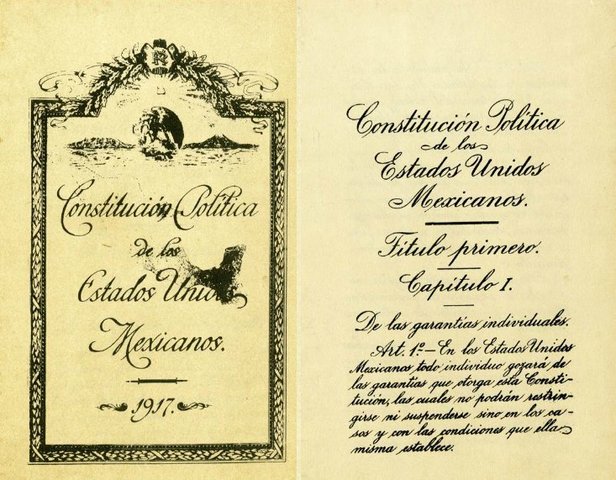 R
Constitución Política
de los
Estados Unidos
Mexicanos.
1917.
Constitución Política
de los
Estados Unidos
Mexicanos.
Título primero.
Capítulo I.
De las garantías individuales.
Art. 1º.— En los Estados Unidos
Mexicanos todo individuo gozará de
las garantías que otorga esta Consti-
tución, las cuales no podrán restrin-
girse ni suspenderse sino en los ca-
sos y con las condiciones que ella
misma establece.